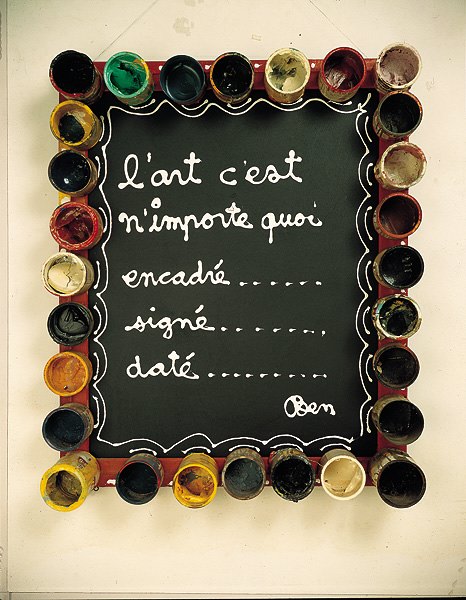 l'art c'est
n'importe quoi
encadré.......
signé........
daté.........
Ben